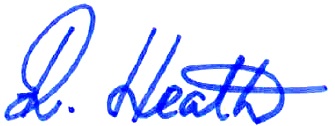 D. Heath